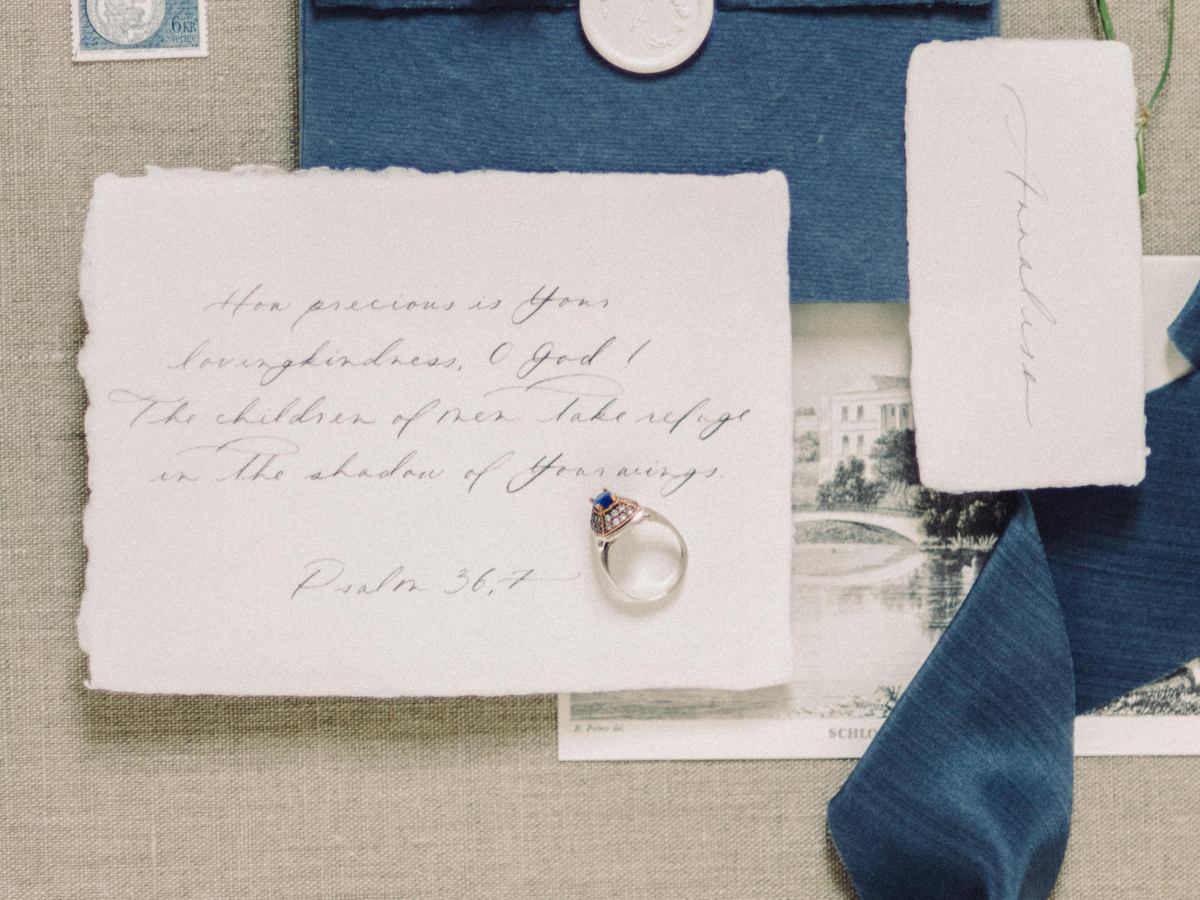 6 KR
Sverige
How precious is Your
lovingkindness, O God!
The children of men take refuge
in the shadow of Your wings.
Psalm 36,7
Annalisa
SCHLO